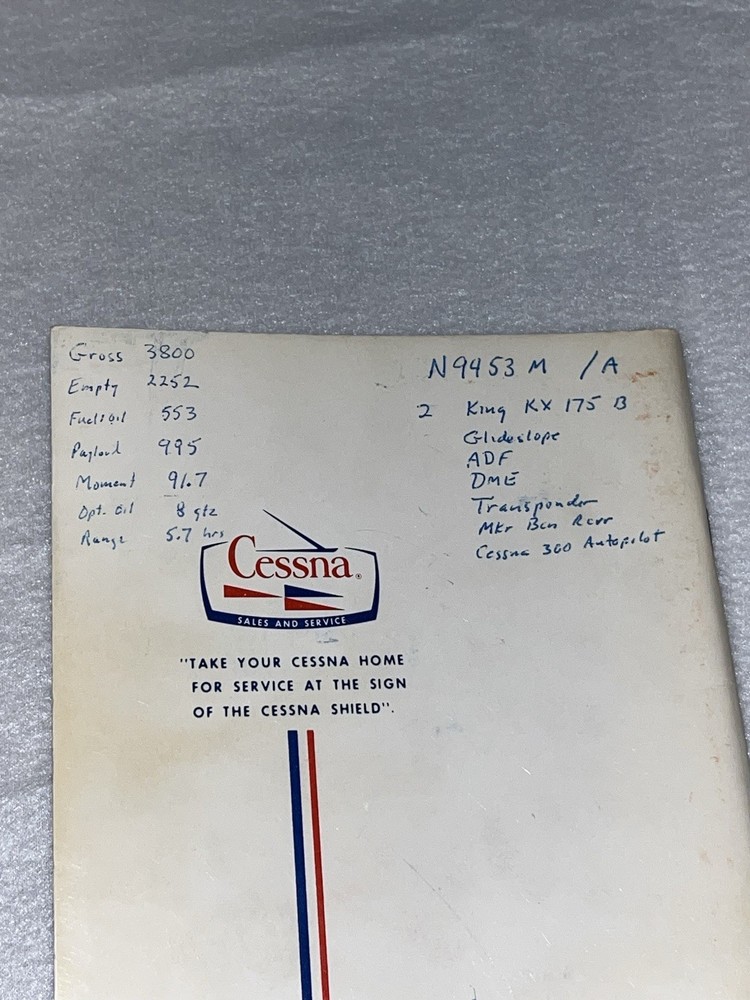 Gross 3800
Empty 2252
Fuel&oil 553
Payload 995
Moment 91.7
Opt. Oil 8 qtz
Range 5.7 hrs
N9453M /A
2 King KX 175 B
Glideslope
ADF
DME
Transponder
Mkr Bcn Rcvr
Cessna 300 Autopilot
Cessna®
SALES AND SERVICE
"TAKE YOUR CESSNA HOME
FOR SERVICE AT THE SIGN
OF THE CESSNA SHIELD".